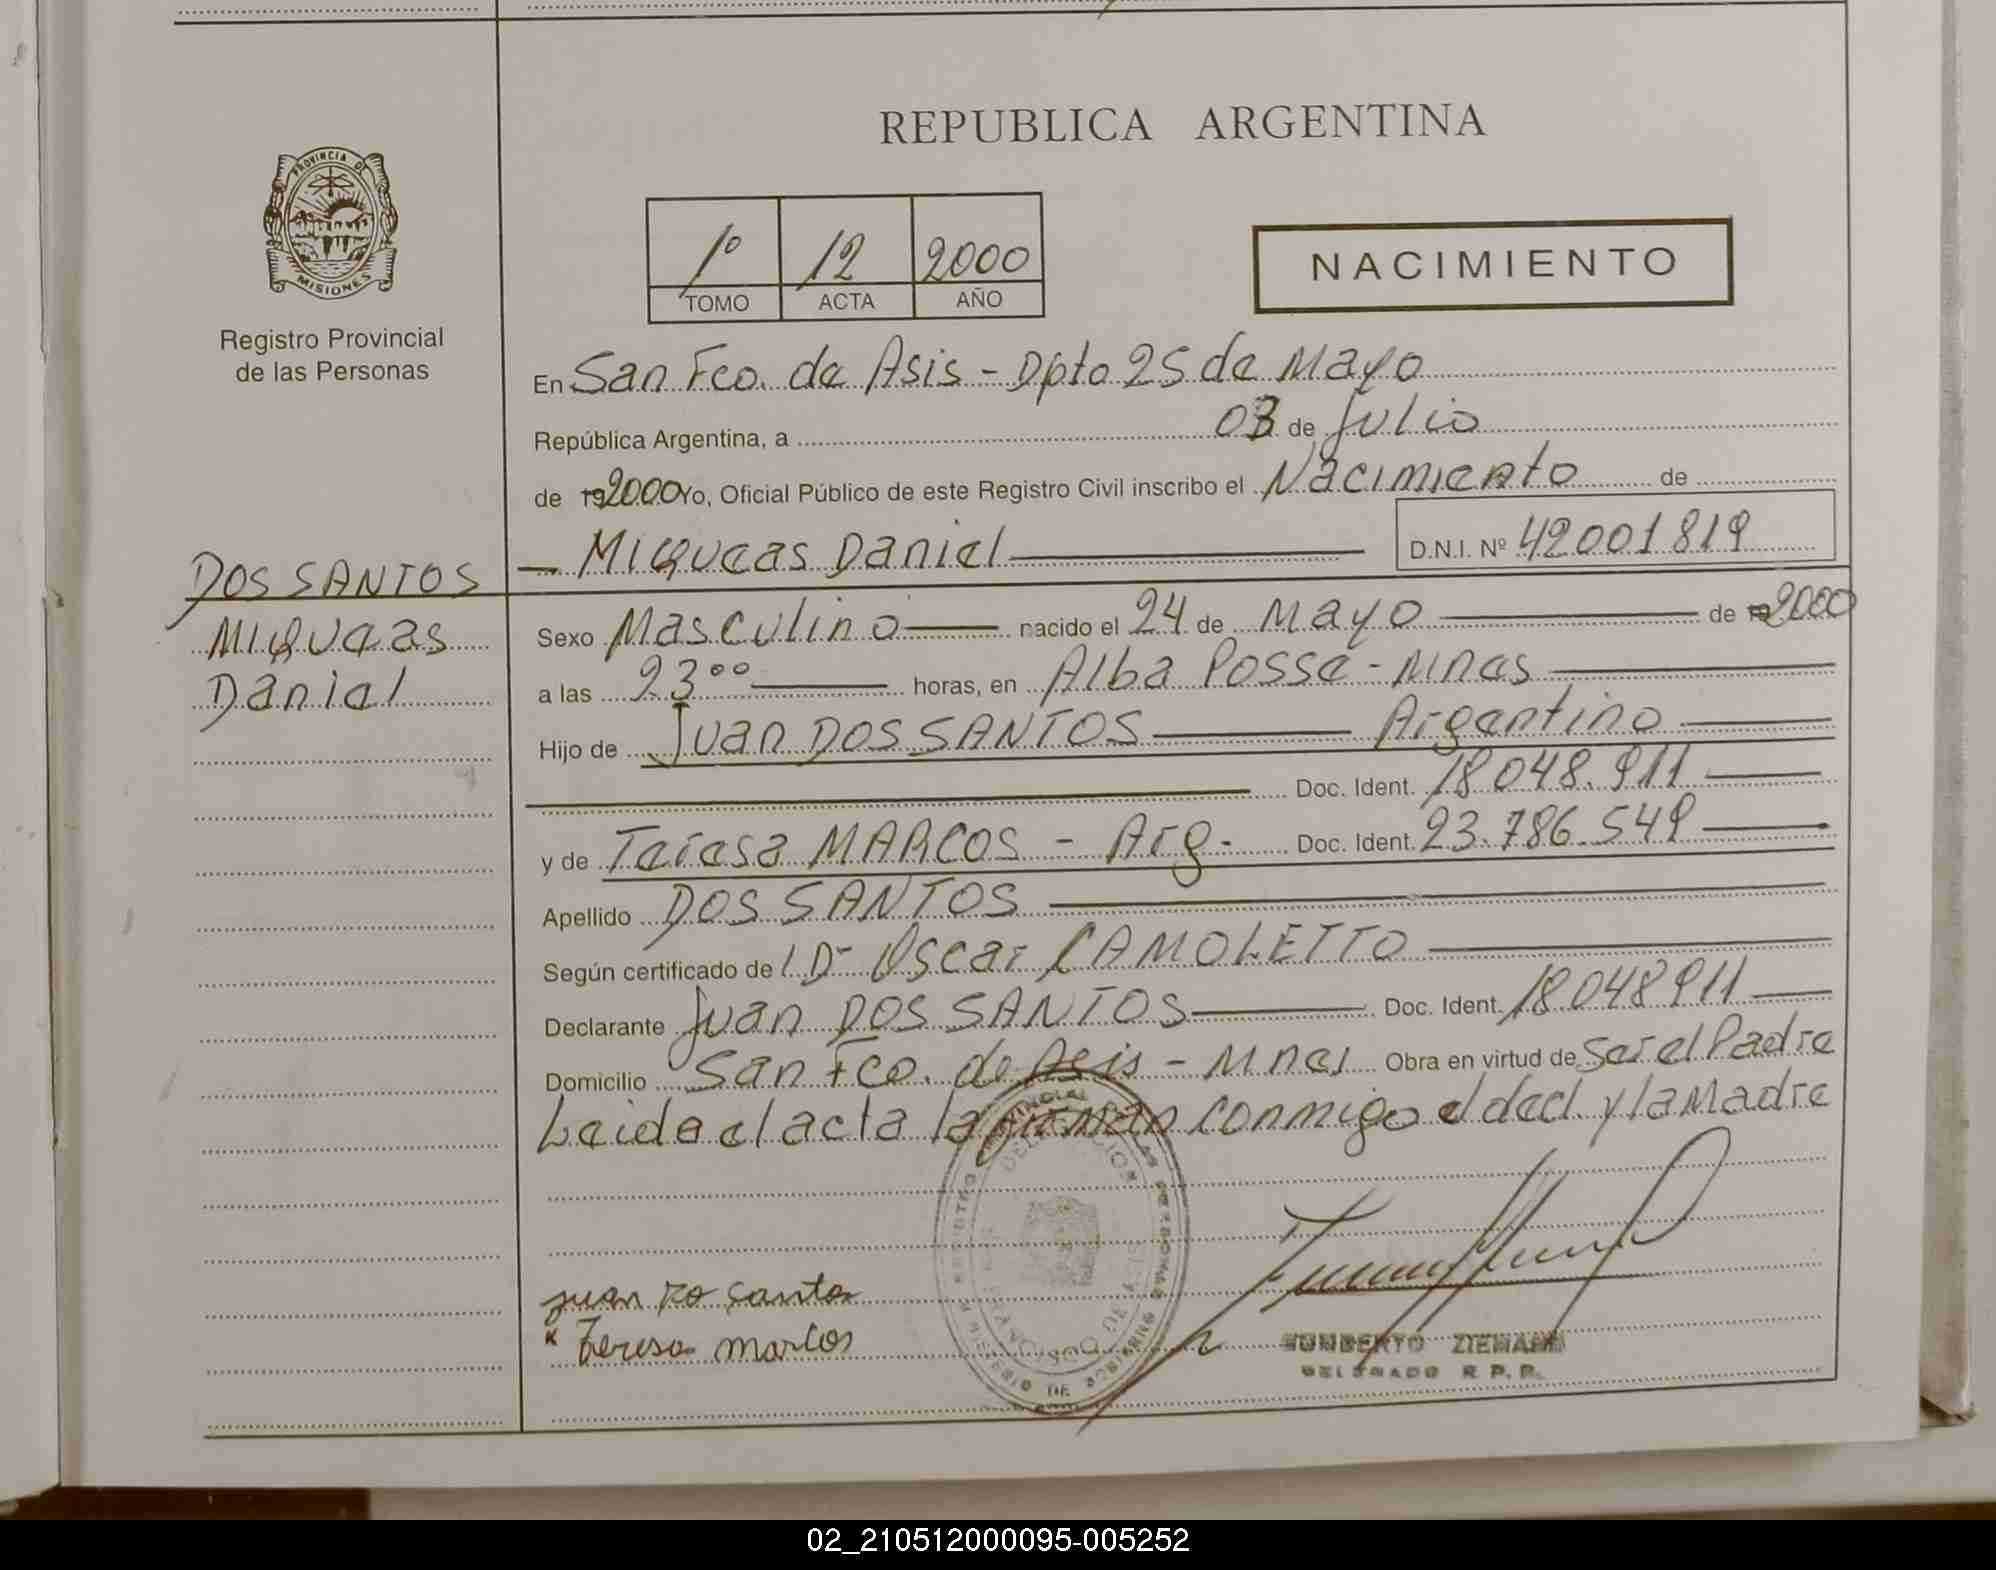 REPUBLICA ARGENTINA
PROVINCIA DE
MISIONES
Registro Provincial
de las Personas
1º 12 2000
TOMO ACTA AÑO
NACIMIENTO
En San Fco. de Asis - Dpto 25 de Mayo
República Argentina, a 03 de Julio
de 192000 Yo, Oficial Público de este Registro Civil inscribo el Nacimiento de
- Miqueas Daniel D.N.I. Nº 42001819
DOS SANTOS
Miqueas
Daniel
Sexo Masculino nacido el 24 de Mayo de 192000
a las 23ºº horas, en Alba Posse - Mnes
Hijo de Juan DOS SANTOS Argentino
Doc. Ident. 18048.911
y de Teresa MARCOS - Arg. Doc. Ident. 23.786.549
Apellido DOS SANTOS
Según certificado de Dr Oscar CAMOLETTO
Declarante Juan DOS SANTOS Doc. Ident. 18048911
Domicilio San Fco. de Asis - Mnes Obra en virtud de Ser el Padre
Leida el acta la firman conmigo el decl. y la Madre
juan santos
Teresa marcos
HUMBERTO ZIEMANN
DELEGADO R.P.P.
02_210512000095-005252